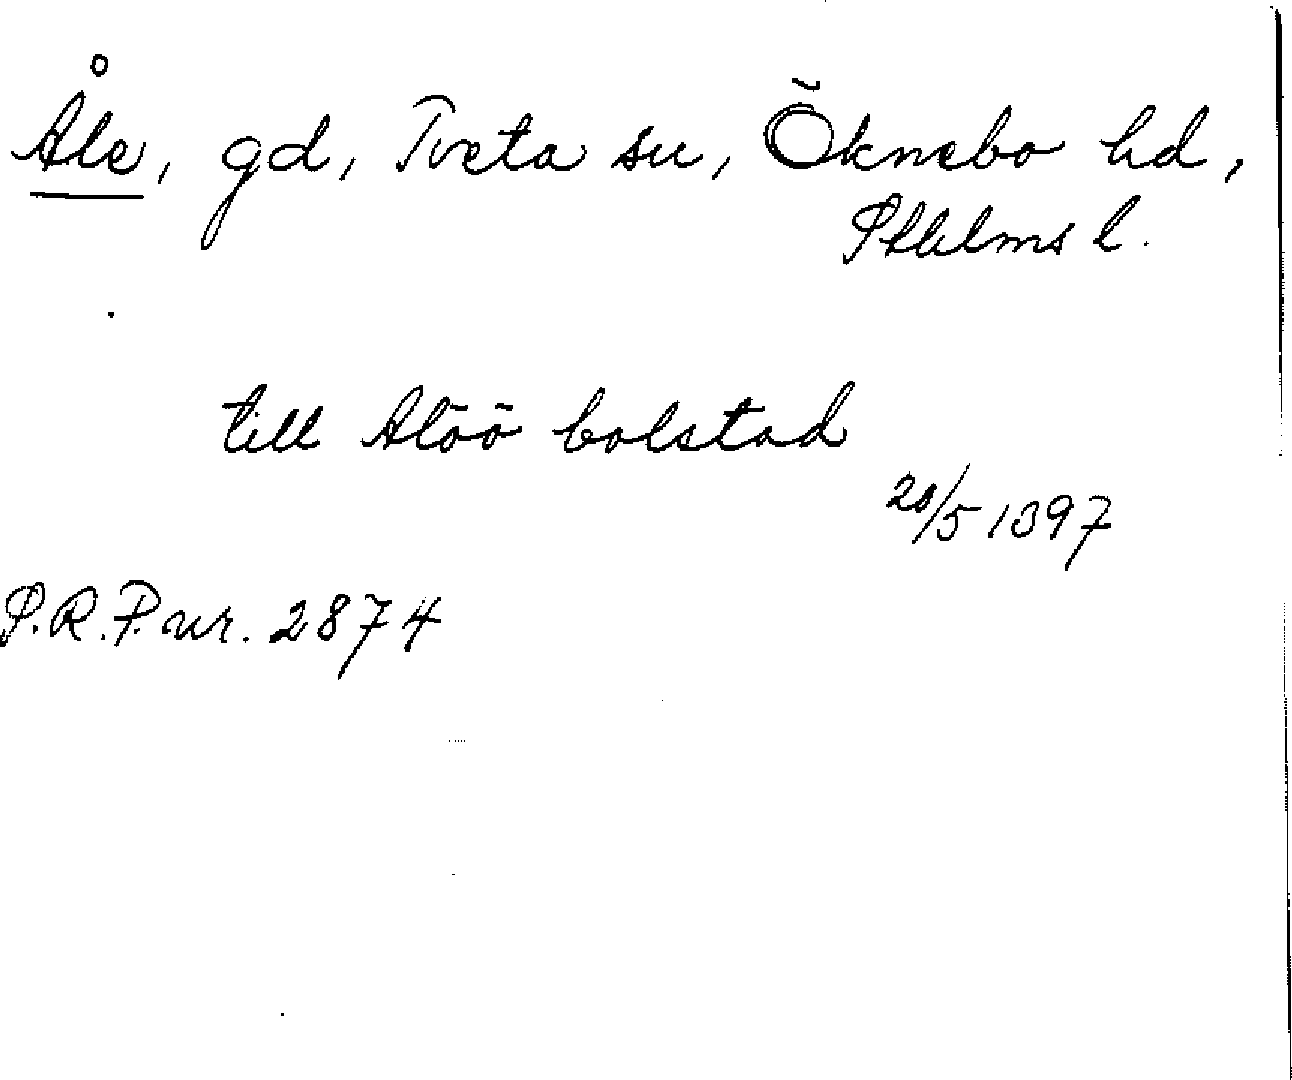 Åle, gd, Tveta sn, Öknebo hd,
Sthlms l.
till Alöö bolstad
20/5 1397
S.R.P. nr. 2874